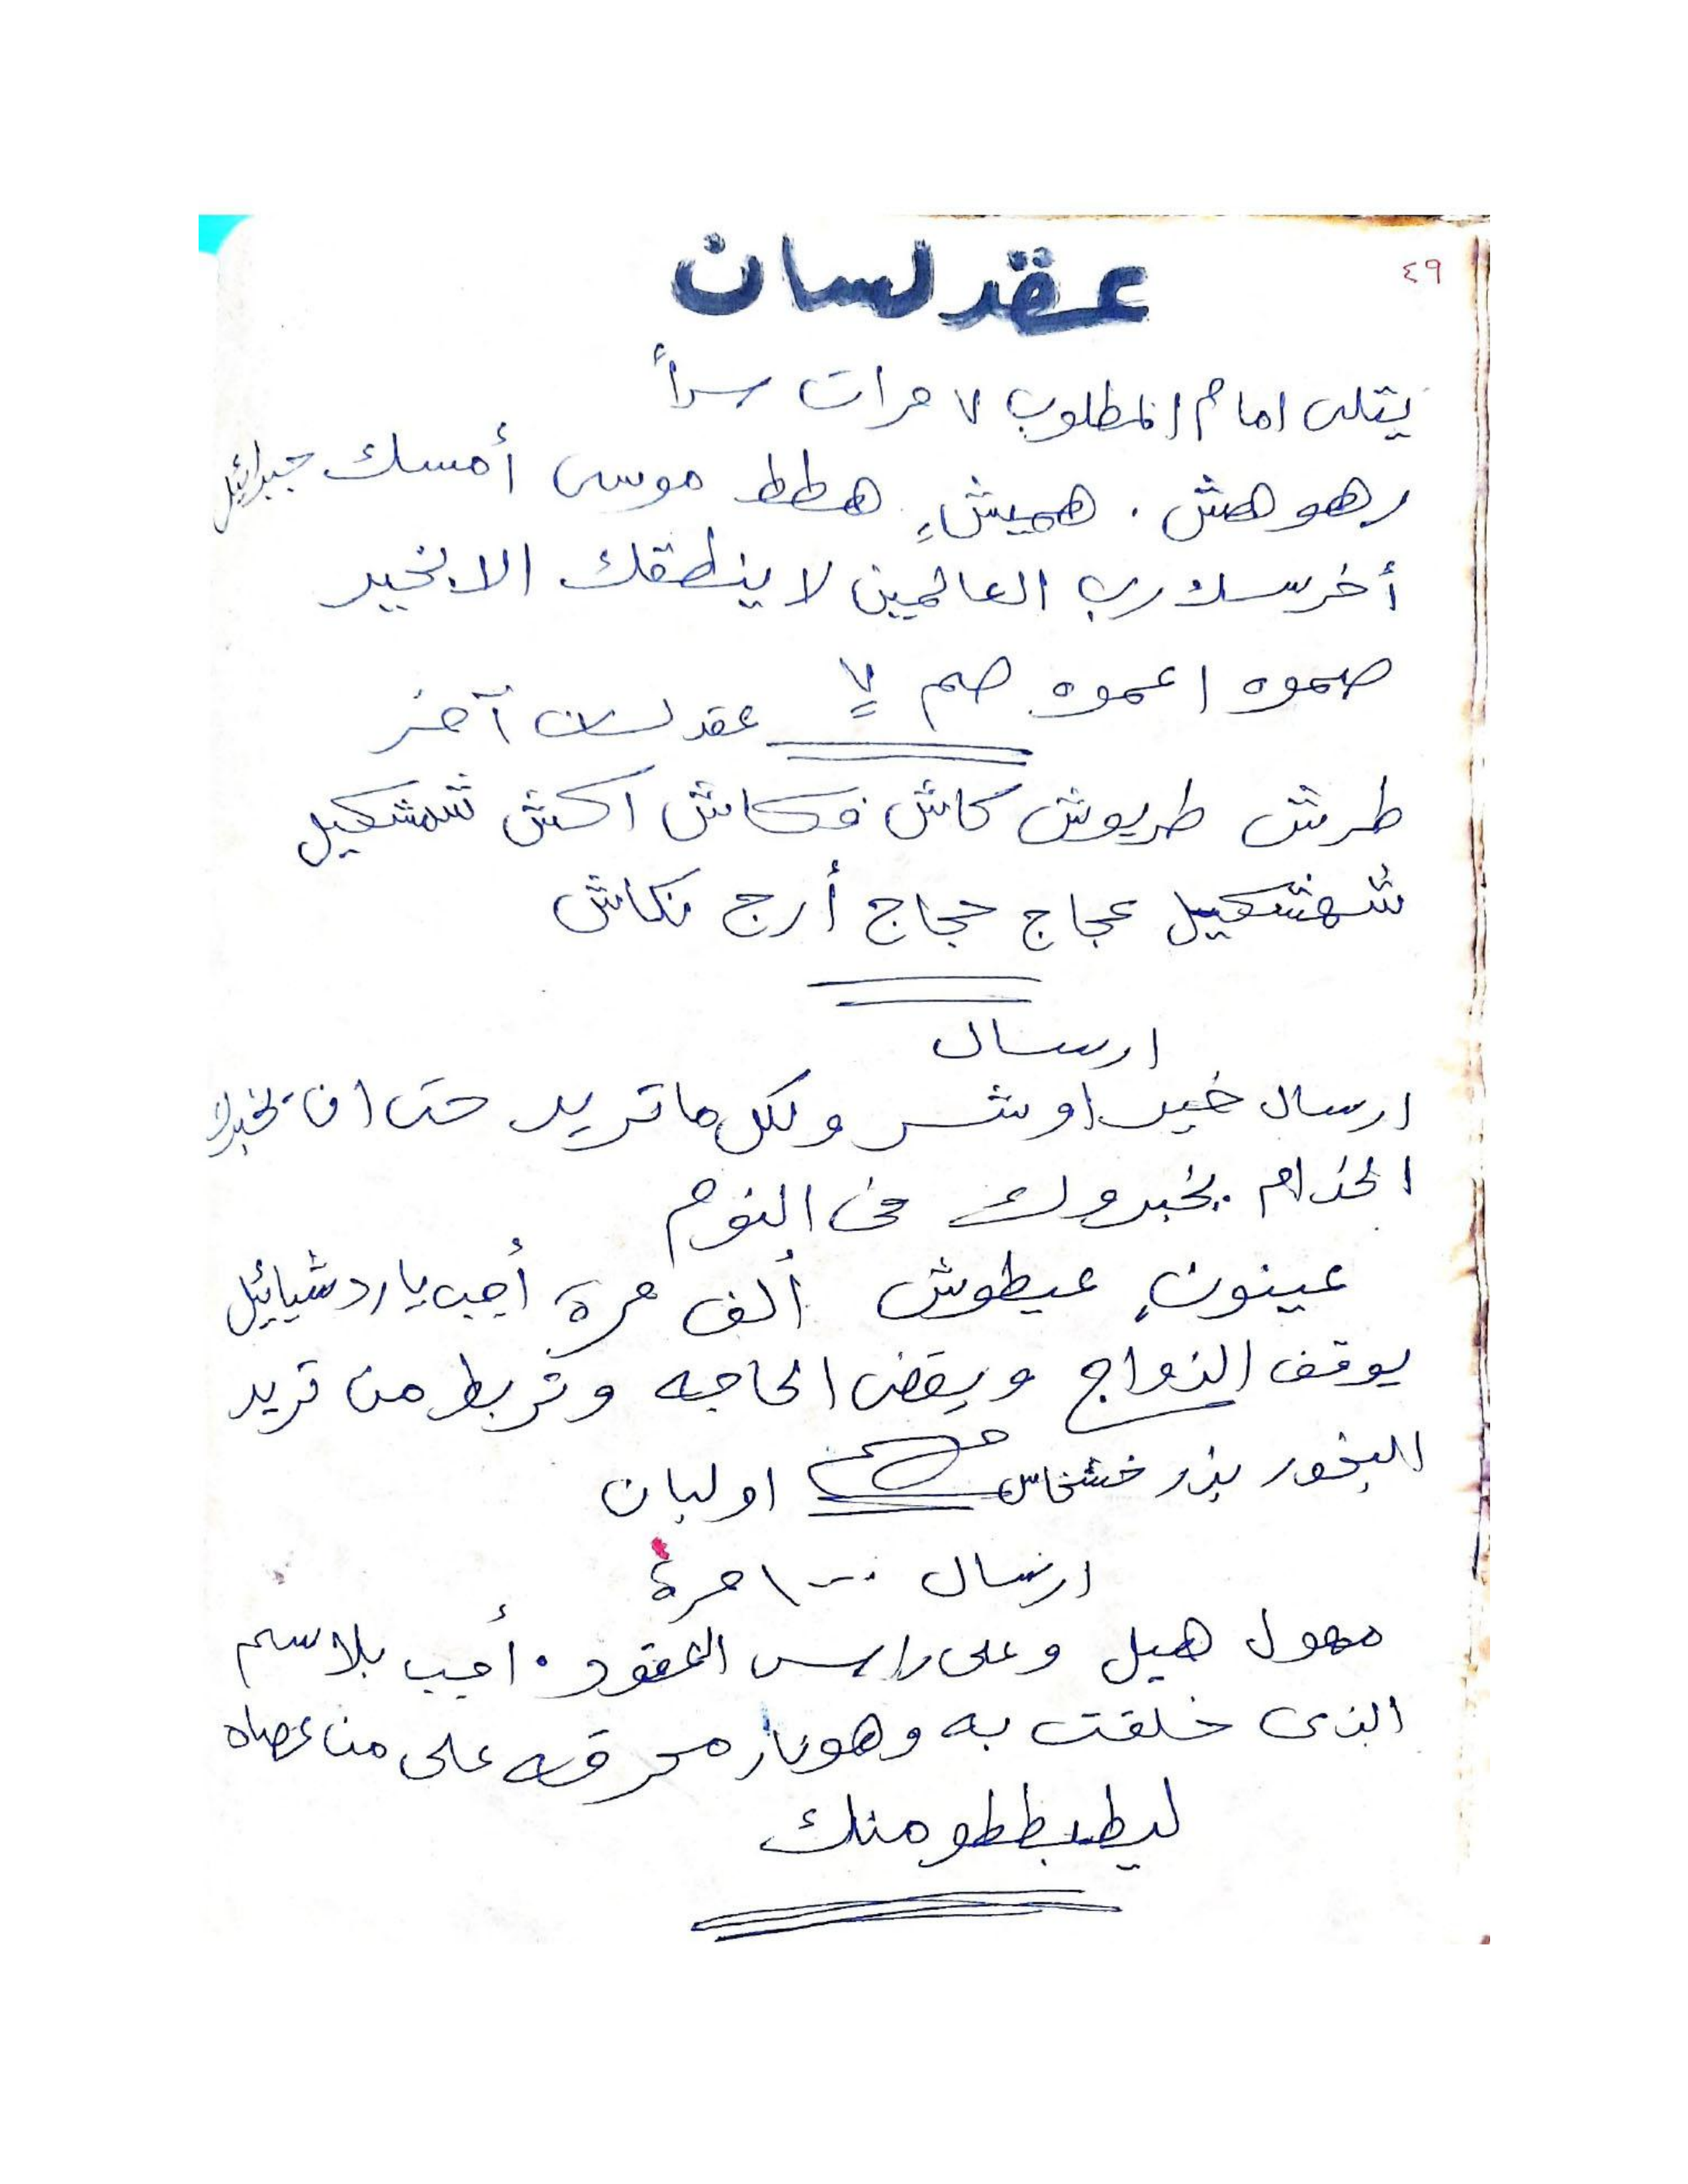 ٤٩
عقد لسان
يتلى امام المطلوب ٧ مرات سرأ
رهوهش . هميش هطط موسى أمسك جبرائيل
أخرسك رب العالمين لا ينطقك الا بخير
صموه اعموه صم ٧
عقد لسان آخر
طرش طريوش كاش فكاش اكش شمشكيل
شهشكيل عجاج حجاج أرج نكاش
ارسال
ارسال خير او شر ولكل ما تريد حتى ان يخبرك
الخدام يخبروك فى النوم
عينون عيطوش ألف مرة أجب يا ردشيائيل
يوقف الزواج ويقض الحاجه وتربط من تريد
البخور بذر خشخاش او لبان
ارسال ١٠٠٠ مرة
مهول هيل وعلى رايس العقود . أجب بلاسم
الذى خلقت به وهو نار محرقه على من عصاه
منك